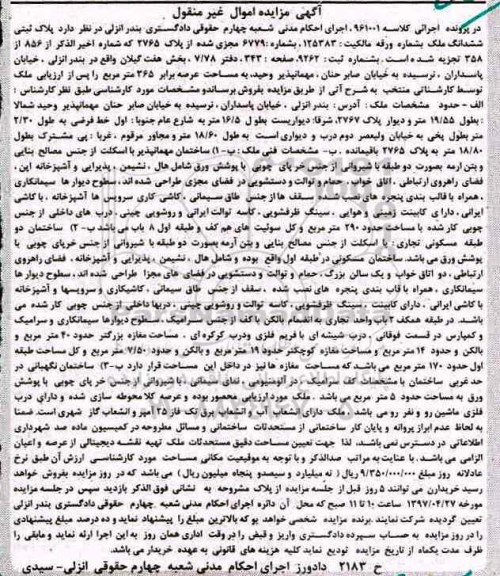 آگهی مزایده اموال غیر منقول
در پرونده اجرائی کلاسه ۹۶۱۰۰۱ اجرای احکام مدنی شعبه چهارم حقوقی دادگستری بندر انزلی در نظر دارد پلاک ثبتی
ششدانگ ملک بشماره ورقه مالکیت: ۱۲۵۳۸۳، بشماره: ۶۷۷۹ مجزی شده از پلاک ۲۷۶۵ که شماره اخیر الذکر از ۸۵۶ از
۳۵۸ تجزیه شده است. بشماره ثبت: ۹۲۶۲، صفحه: ۳۴۳، دفتر ۷/۷۸، بخش هفت گیلان واقع در بندر انزلی، خیابان
پاسداران، نرسیده به خیابان صابر حنان، مهمانپذیر وحید، به مساحت عرصه برابر ۳۶۵ متر مربع را پس از ارزیابی ملک
توسط کارشناس منتخب به شرح آتی از طریق مزایده بفروش برساند و مشخصات مورد کارشناسی طبق نظر کارشناس:
الف - حدود مشخصات ملک: آدرس: بندر انزلی، خیابان پاسداران، نرسیده به خیابان صابر حنان مهمانپذیر وحید شمالا
: بطول ۱۹/۵۵ متر و دیوار پلاک ۲۷۶۷، شرقا: دیواریست بطول ۱۶/۵ متر به شارع عام جنوبا: اول خط فرضی به طول ۲/۳۰
متر بطول پخی به خیابان ولیعصر دوم درب و دیواری است به طول ۱۸/۶۰ متر و مجاور مرقوم، غربا: پی مشترک بطول
۱۸/۸۰ متر به پلاک ۲۷۶۵ باقیمانده. ب- مشخصات فنی ملک: ب-۱) ساختمان مهمانپذیر با اسکلت از جنس مصالح بنایی
و بتن آرمه بصورت دو طبقه با شیروانی از جنس خرپای چوبی با پوشش ورق شامل هال، نشیمن، پذیرایی و آشپزخانه این،
فضای راهروی ارتباطی، اتاق خواب، حمام و توالت و دستشویی در فضای مجزی طراحی شده اند، سطوح دیوارها سیمانکاری
، همراه با قالب بندی پنجره های نصب شده، سقف ها از جنس طاق سیمانی، کاشی کاری سرویس ها آشپزخانه، با کاشی
ایرانی، دارای کابینت زمینی و هوایی، سینگ ظرفشویی، کاسه توالت ایرانی و روشویی چینی، درب های داخلی از جنس
چوبی کار شده با مساحت حدود ۲۹۰ متر مربع و کل سوئیت های هم کف و طبقه اول ۸ باب می باشد ب- ۲) ساختمان دو
طبقه مسکونی تجاری: با اسکلت از جنس مصالح بنایی و بتن آرمه بصورت دو طبقه با شیروانی از جنس خرپای چوبی با
پوشش ورق می باشد. ساختمان مسکونی در طبقه اول واقع بوده و شامل هال، نشیمن، پذیرایی و آشپزخانه، فضای راهروی
ارتباطی، دو اتاق خواب و یک سالن بزرگ، حمام و توالت و دستشویی در فضای های مجزا طراحی شده اند، سطوح دیوار ها
سیمانکاری، همراه با قاب بندی پنجره های نصب شده، سقف از جنس طاق سیمانی، کاشیکاری و سرویسها و آشپزخانه
با کاشی ایرانی، دارای کابینت، سینک ظرفشویی، کاسه توالت و روشویی چینی، دربها داخلی از جنس چوبی کار شده می
باشد. در طبقه همکف ۲ باب واحد تجاری به انضمام بالکن با کف از جنس سرامیک، سطوح دیوارها سیمانکاری و سرامیک
و کمپارس در قسمت فوقانی، درب شیشه ای با فریم فلزی و درب کرکره ای. مساحت مغازه بزرگتر حدود ۴۰ متر مربع و
بالکن و حدود ۱۴ متر مربع و مساحت مغازه کوچکتر حدود ۱۹ متر مربع و بالکن و حدود ۷/۵۰ متر مربع و کل مساحت طبقه
اول حدود ۱۷۰ متر مربع می باشد که مساحت مغازه ها نیز در داخل این مساحت قرار دارد ب-۳) ساختمان نگهبانی در
حد غربی ساختمان با مشخصات کف سرامیک، در آلومینیومی، نمای سیمانی، با شیروانی از جنس خرپای چوبی با پوشش
ورق به مساحت حدود ۵ متر مربع می باشد، ملک مورد ارزیابی محصور بوده و عرصه کلا محوطه سازی شده و دارای درب
فلزی ماشین رو و نفر رو می باشد. ملک دارای انشعاب آب و انشعاب برق تک فاز ۲۵ آمپر و انشعاب گاز شهری است. ضمنا
به لحاظ عدم ابراز پروانه و پایان کار ساختمانی از مستحدثات ساختمانی و مسائل مطروحه در کمیسیون ماده صد شهرداری
اطلاعاتی در دسترس نمی باشد. لذا جهت تعیین مساحت دقیق مستحدثات ملک تهیه نقشه دیجیتالی از عرصه و اعیان
الزامی می باشد. با عنایت به مراتب صدالذکر و با توجه به موقعیت مکانی مساحت مورد کارشناسی ارزش آن طبق نرخ
عادلانه روز مبلغ ۹/۳۵۰/۰۰۰/۰۰۰ ریال ( نه میلیارد و سیصد و پنجاه میلیون ریال ) می باشد که در روز مزایده بفروش خواهد
رسید خریداران می توانند ۵ روز قبل از جلسه مزایده از پلاک مشروحه به نشانی فوق الذکر بازدید سپس در جلسه مزایده
مورخه ۱۳۹۷/۰۴/۲۷ ساعت ۱۰ تا ۱۱ صبح که محل آن دائره اجرای احکام مدنی شعبه چهارم حقوقی دادگستری بندر انزلی
تعیین گردیده شرکت نمایند. برنده مزایده شخصی خواهد بود که بالاترین مبلغ را پیشنهاد نماید و ده درصد مبلغ پیشنهادی
را در روز مزایده به حساب سپرده دادگستری واریز و قبض را در وقت اداری همان روز به این اجرا ارئه نماید و مابقی را
ظرف مدت یکماه از تاریخ مزایده تودیع نماید کلیه هزینه های قانونی به عهده خریدار می باشد.
ح ۲۱۸۳ دادورز اجرای احکام مدنی شعبه چهارم حقوقی انزلی- سیدی